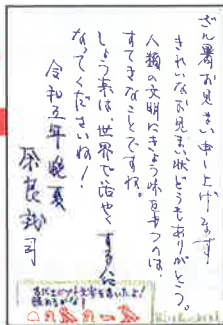 ざん暑お見まい申し上げます!
きれいなお見まい状どうもありがとう。
人類の文明にきょう味を持つのは、
すてきなことですね。
しょう来は、世界で活やくする人に
なってくださいね!
令和五年 晩夏